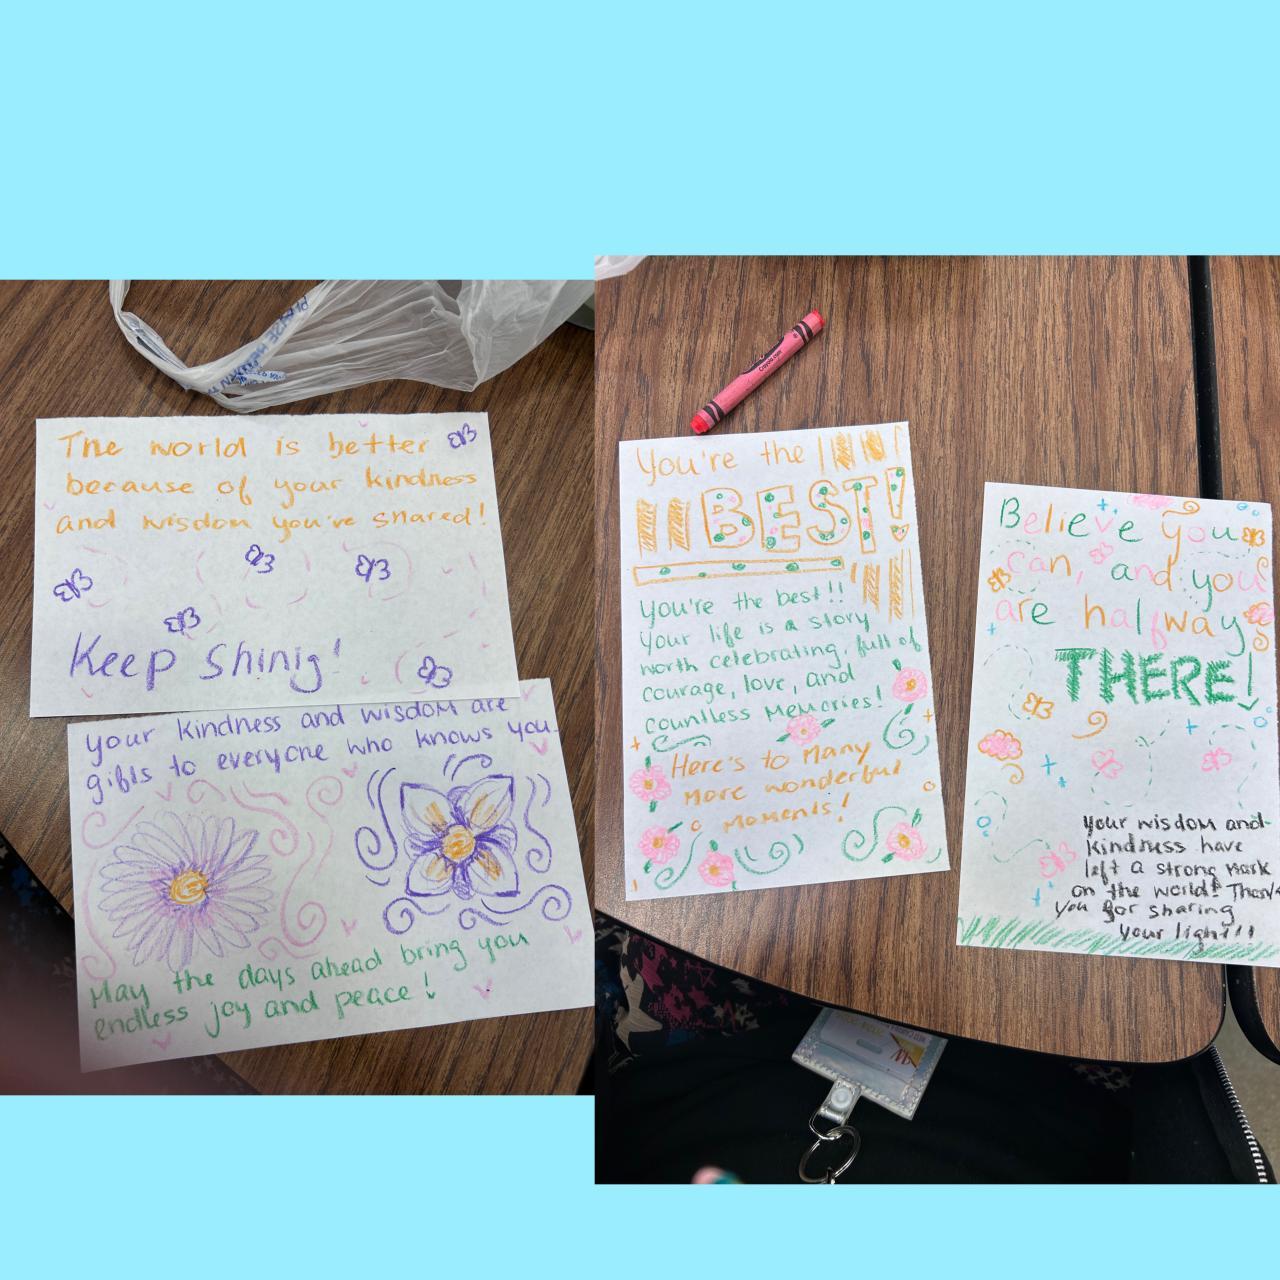 The world is better
because of your kindness
and wisdom you've shared!
Keep Shinig!
your kindness and wisdom are
gifts to everyone who knows you.
May the days ahead bring you
endless joy and peace!
You're the
BEST!
You're the best!!
Your life is a story
worth celebrating, full of
courage, love, and
countless Memories!
Here's to Many
More wonderful
Moments!
Believe you
can, and you
are halfway
THERE!
your wisdom and
kindness have
left a strong mark
on the world! Thank
you for sharing
your light!!!